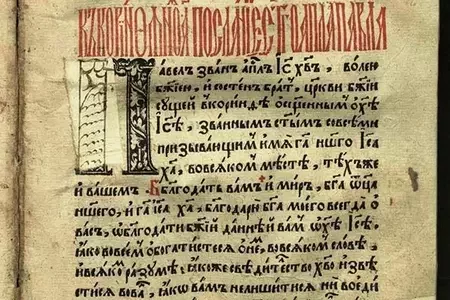 КЪКОРИНѲѦНОМЪ ПОСЛАНІЕ СТГО АПЛА ПАВЛА
Павелъ званъ апⷭ҇лъ І҆с҃ хв҃ъ, волею
бж҃їею, и состенъ братъ, цр҃кви бж҃їи
сущей в коринѳѣ ѡсщ҃еннымъ ѡ хѣ
І҆с҃ѣ, званнымъ ст҃ымъ совсѣми
призывающими имѧ га҃ нш҃его І҆са
ха҃, во всѧкомъ мѣстѣ, тѣхъже
и вашемъ. Благодать вамъ и миръ, ѿ бг҃а ѻц҃а
нш҃его, и га҃ І҆са ха҃, благодарю бг҃а моего всегда ѡ
васъ, ѡ благодати бж҃їи даннѣй вамъ ѡ хѣ І҆с҃ѣ,
ꙗко во всемъ обогатистеся ѡ нем, во всѧкомъ словѣ,
и всѧко разумѣ, ꙗкоже свѣдитество хв҃о извѣ
стисѧ в васъ, ꙗко вамъ не лишитисѧ ни во еди